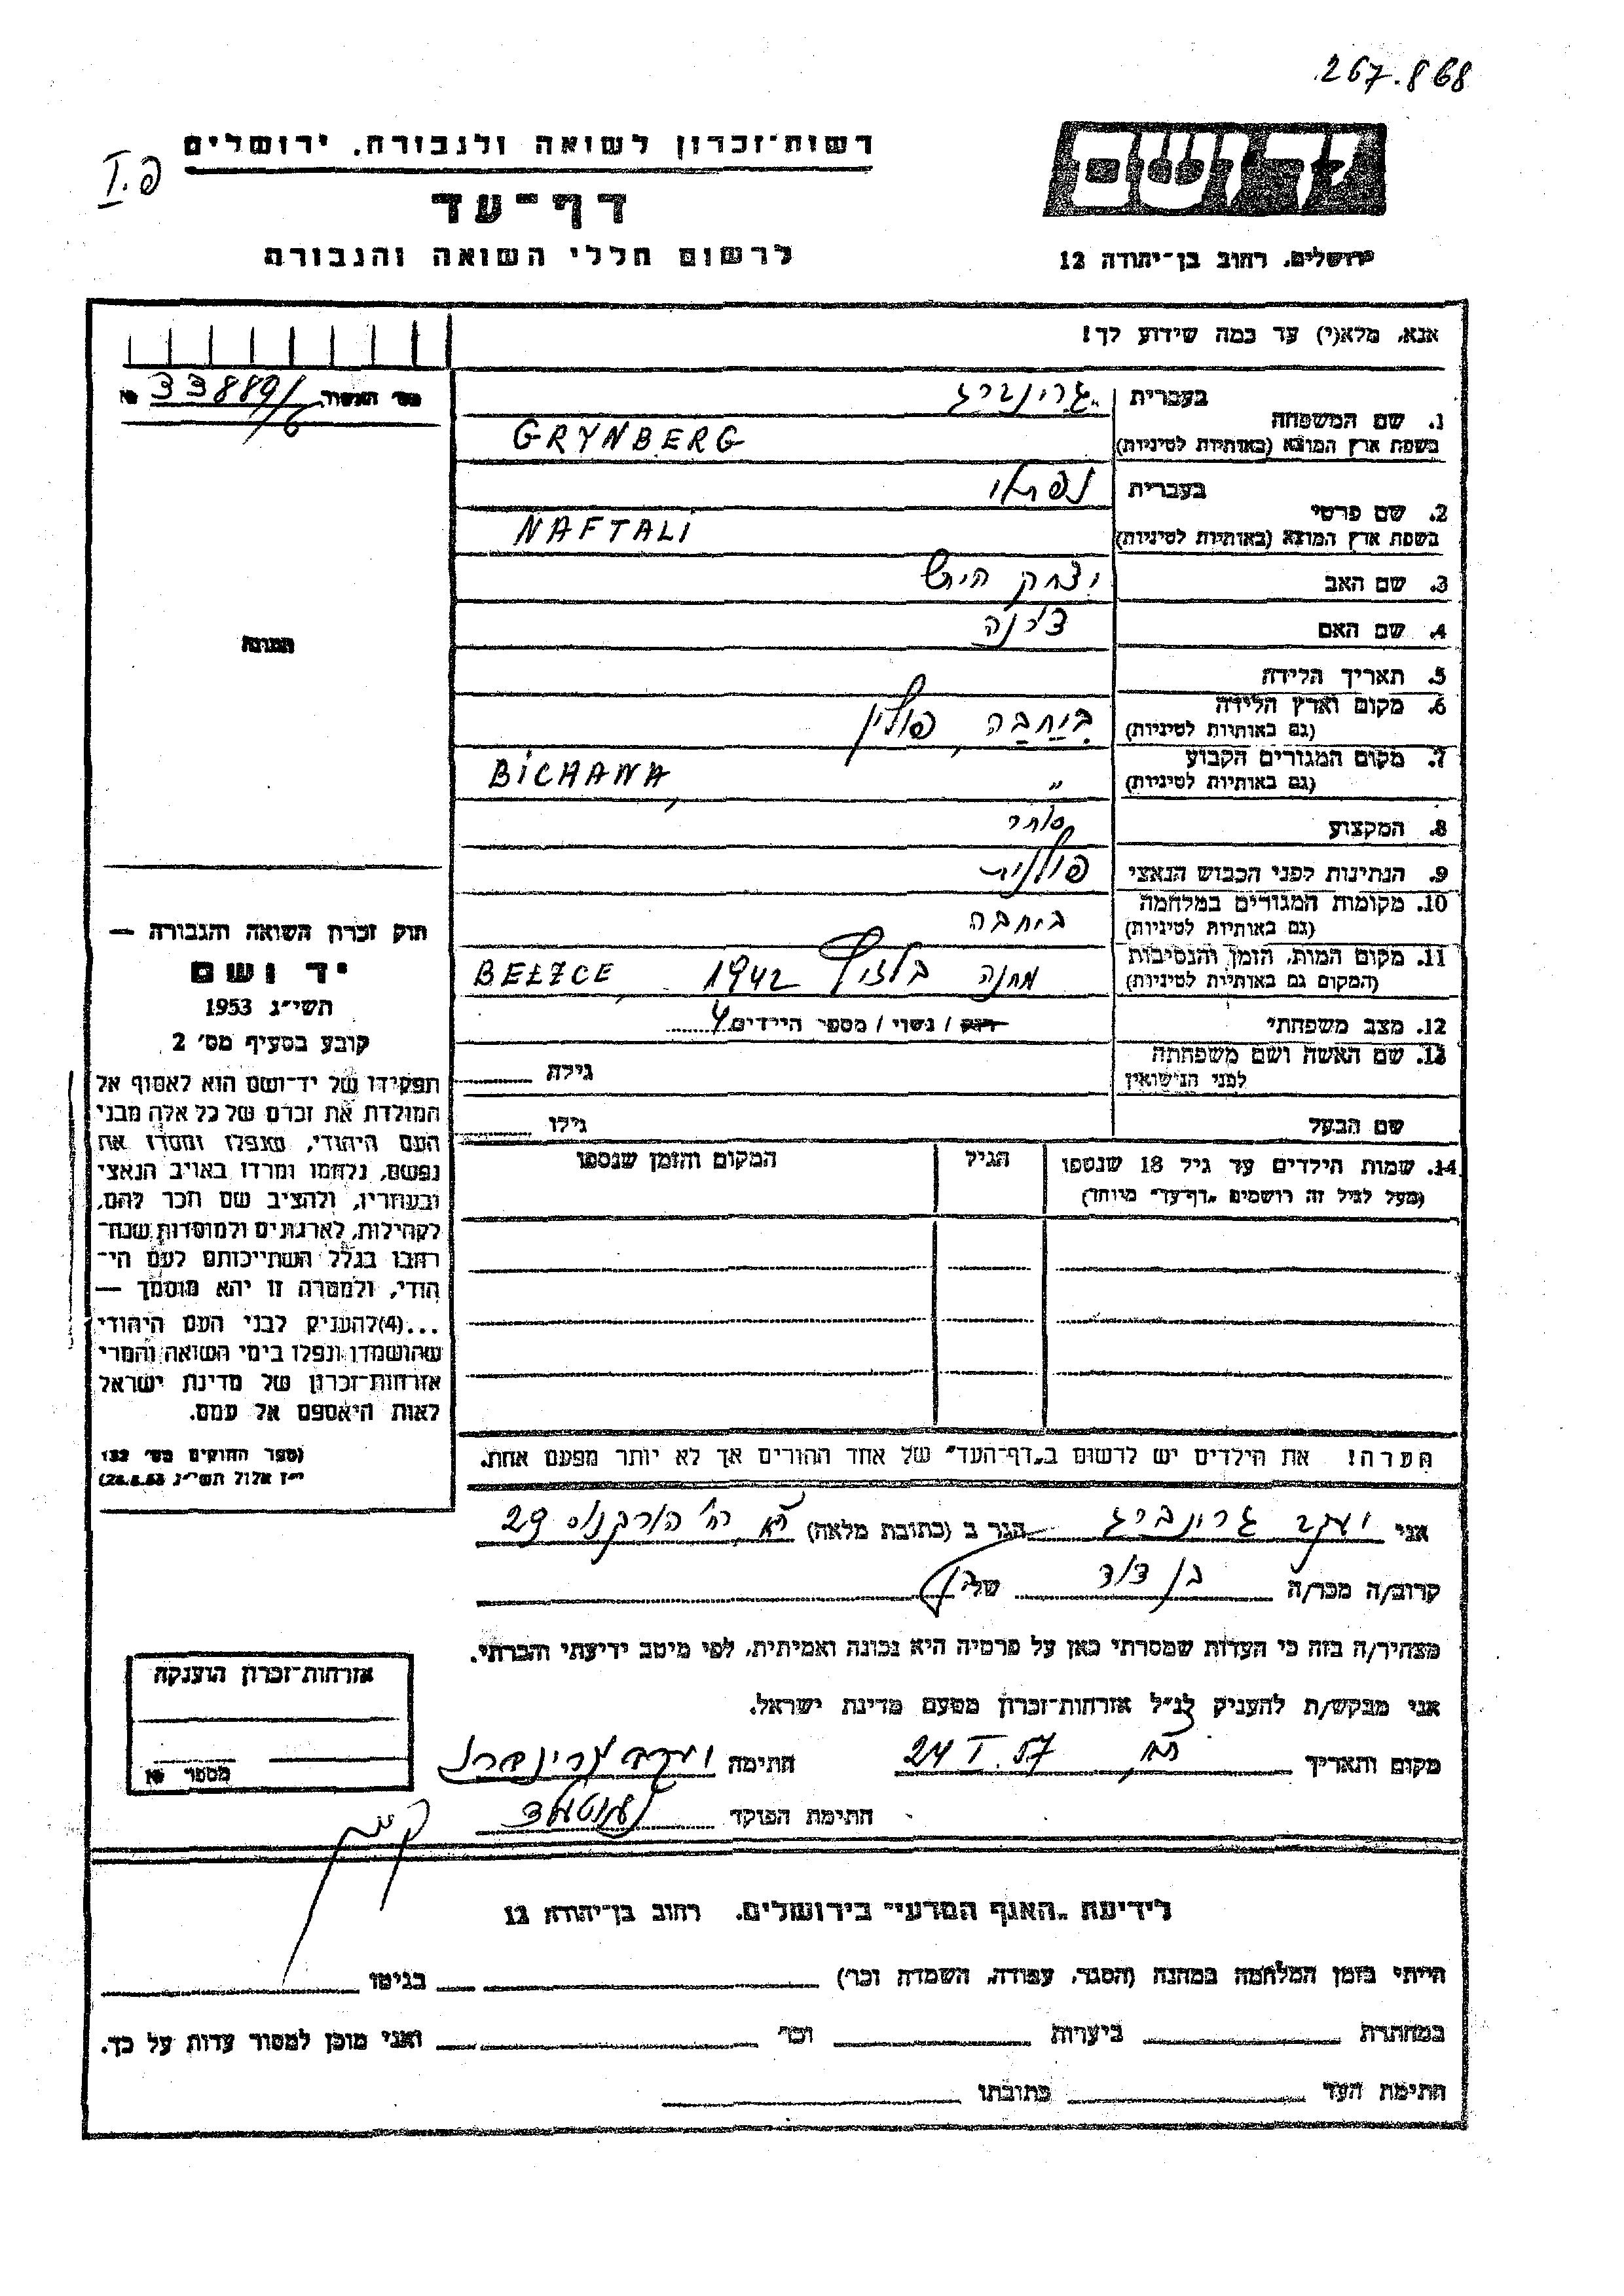 267.868
פ.I
רשות־זכרון לשואה ולגבורה, ירושלים
דף־עד
לרשום חללי השואה והגבורה
יד ושם
ירושלים, רחוב בן־יהודה 12
אנא, מלא(י) עד כמה שידוע לך!
מס׳ האשור № 33889/6
1. שם המשפחה בעברית גרינברג
בשפת ארץ המוצא (באותיות לטיניות) GRYNBERG
2. שם פרטי בעברית נפתלי
בשפת ארץ המוצא (באותיות לטיניות) NAFTALI
3. שם האב יצחק הירש
4. שם האם צ׳רנה
5. תאריך הלידה
6. מקום וארץ הלידה (גם באותיות לטיניות) ביחבה, פולין
7. מקום המגורים הקבוע (גם באותיות לטיניות) ״ BICHAWA
8. המקצוע סוחר
9. הנתינות לפני הכבוש הנאצי פולנית
10. מקומות המגורים במלחמה (גם באותיות לטיניות) ביחבה
11. מקום המות, הזמן והנסיבות (המקום גם באותיות לטיניות) מחנה 1942 BEŁŻCE
12. מצב משפחתי רווק / נשוי / מספר הילדים 4
13. שם האשה ושם משפחתה לפני הנישואין גילה
שם הבעל גילו
14. שמות הילדים עד גיל 18 שנספו הגיל המקום והזמן שנספו
(מעל לגיל זה רושמים „דף־עד״ מיוחד)
הערה! את הילדים יש לרשום ב„דף־העד״ של אחד ההורים אך לא יותר מפעם אחת.
התמונה
חוק זכרון השואה והגבורה —
יד ושם
תשי״ג 1953
קובע בסעיף מס׳ 2
תפקידו של יד־ושם הוא לאסוף אל
המולדת את זכרם של כל אלה מבני
העם היהודי, שנפלו ומסרו את
נפשם, נלחמו ומרדו באויב הנאצי
ובעוזריו, ולהציב שם וזכר להם,
לקהילות, לארגונים ולמוסדות שנח־
רבו בגלל השתייכותם לעם הי־
הודי, ולמטרה זו יהא מוסמך —
...(4)להעניק לבני העם היהודי
שהושמדו ונפלו בימי השואה והמרי
אזרחות־זכרון של מדינת ישראל
לאות היאספם אל עמם.
(ספר החוקים מס׳ 132
י״ז אלול תשי״ג 28.8.53)
אני יעקב גרינברג הגר ב (כתובת מלאה) ת״א, רח׳ הורקנוס 29
קרוב/ה מכר/ה בן דוד של
מצהיר/ה בזה כי העדות שמסרתי כאן על פרטיה היא נכונה ואמיתית, לפי מיטב ידיעתי והכרתי.
אני מבקש/ת להעניק לנ״ל אזרחות־זכרון מטעם מדינת ישראל.
מקום ותאריך ת״א, 24 I. 57 חתימה יעקב גרינברג
חתימת הפוקד
אזרחות־זכרון הוענקה
מספר №
לידיעת „האגף המדעי״ בירושלים, רחוב בן־יהודה 12
הייתי בזמן המלחמה במחנה (הסגר, עבודה, השמדה וכו׳) בגיטו
במחתרת ביערות וכו׳ ואני מוכן למסור עדות על כך.
חתימת העד כתובתו